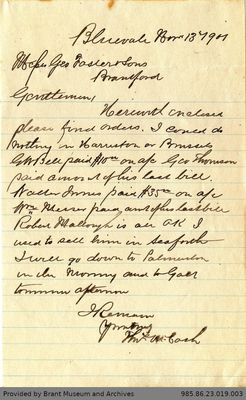 Bluevale Nov 13th 1901
Messrs Geo Foster & Sons
Brantford
Gentlemen,
Herewith enclosed
please find orders. I could do
nothing in Harriston or Brussels
paid $10 on a/c Geo Thomson
paid amount of his last bill.
Walter Innes paid $35 on a/c
Wm Messer paid amt of his last bill
Robert is all O.K. I
used to sell him in Seaforth
I will go down to Palmerston
in the Morning and to Galt
tomorrow afternoon
I Remain
Yours truly
Cash
Provided by Brant Museum and Archives
985.86.23.019.003